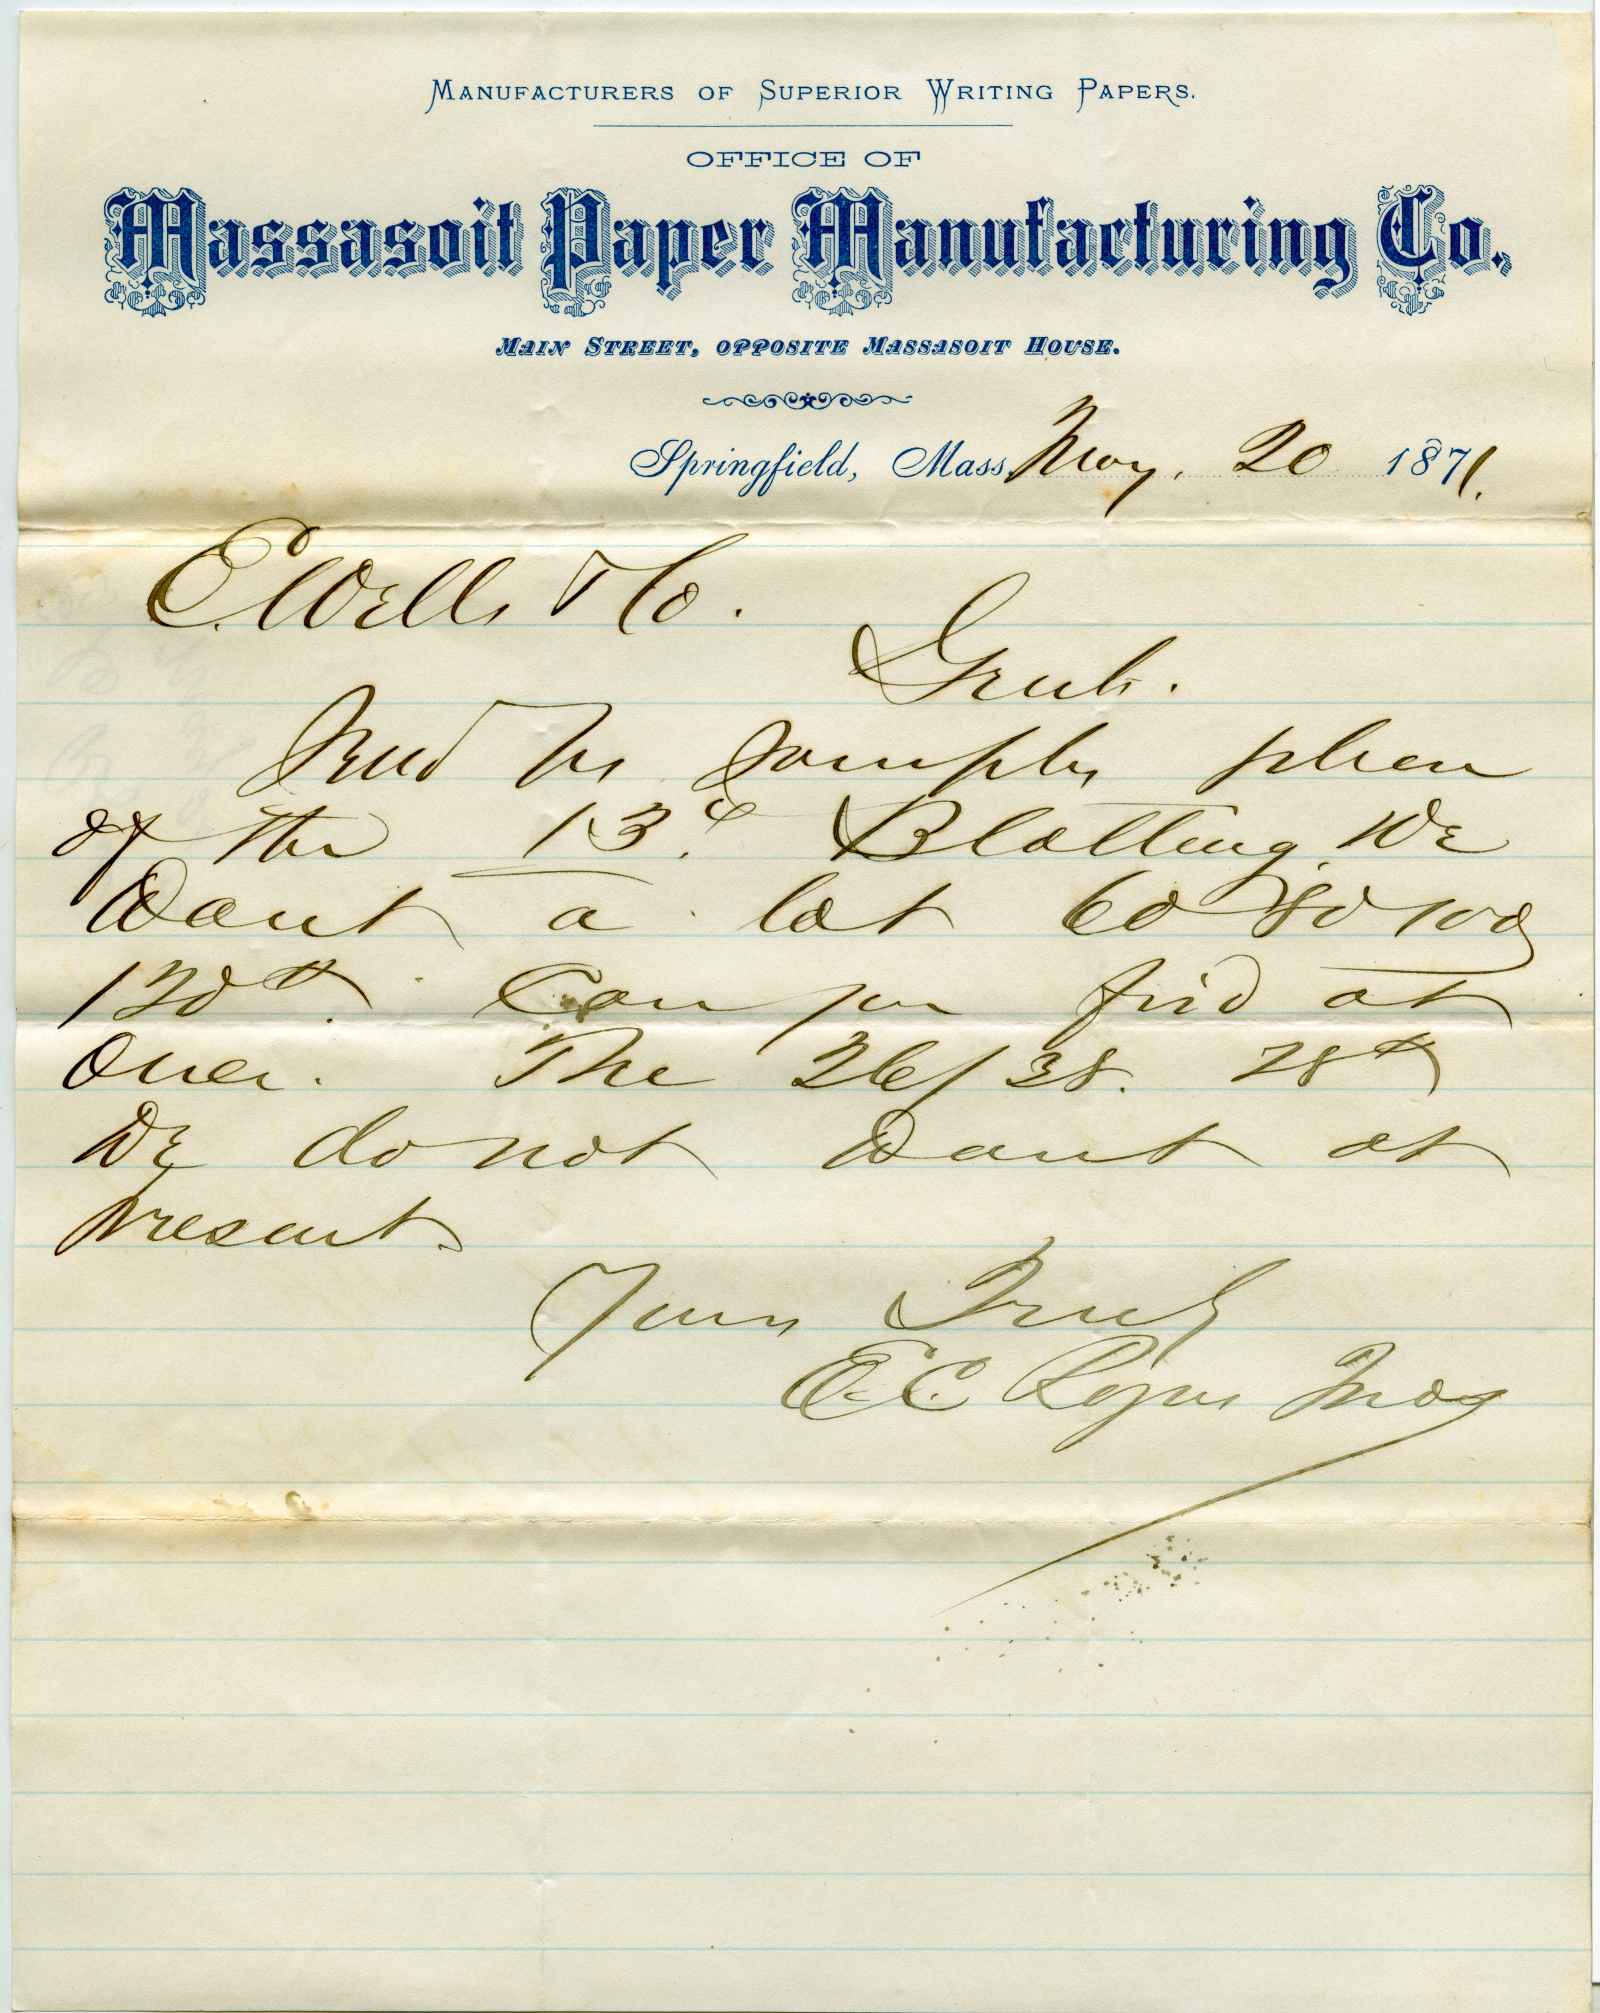 Manufacturers of Superior Writing Papers.
OFFICE OF
Massasoit Paper Manufacturing Co.,
Main Street, opposite Massasoit House.
Springfield, Mass. May. 20 1871.
E. Wells & Co.
Gents.
Send us samples please
of the 13.¢ Blotting. We
Want a lot 60 80 100
120 lb. Can you find at
Once. The 26/38. 28 lb
We do not want at
present.
Yours Truly
E.C. Rogers